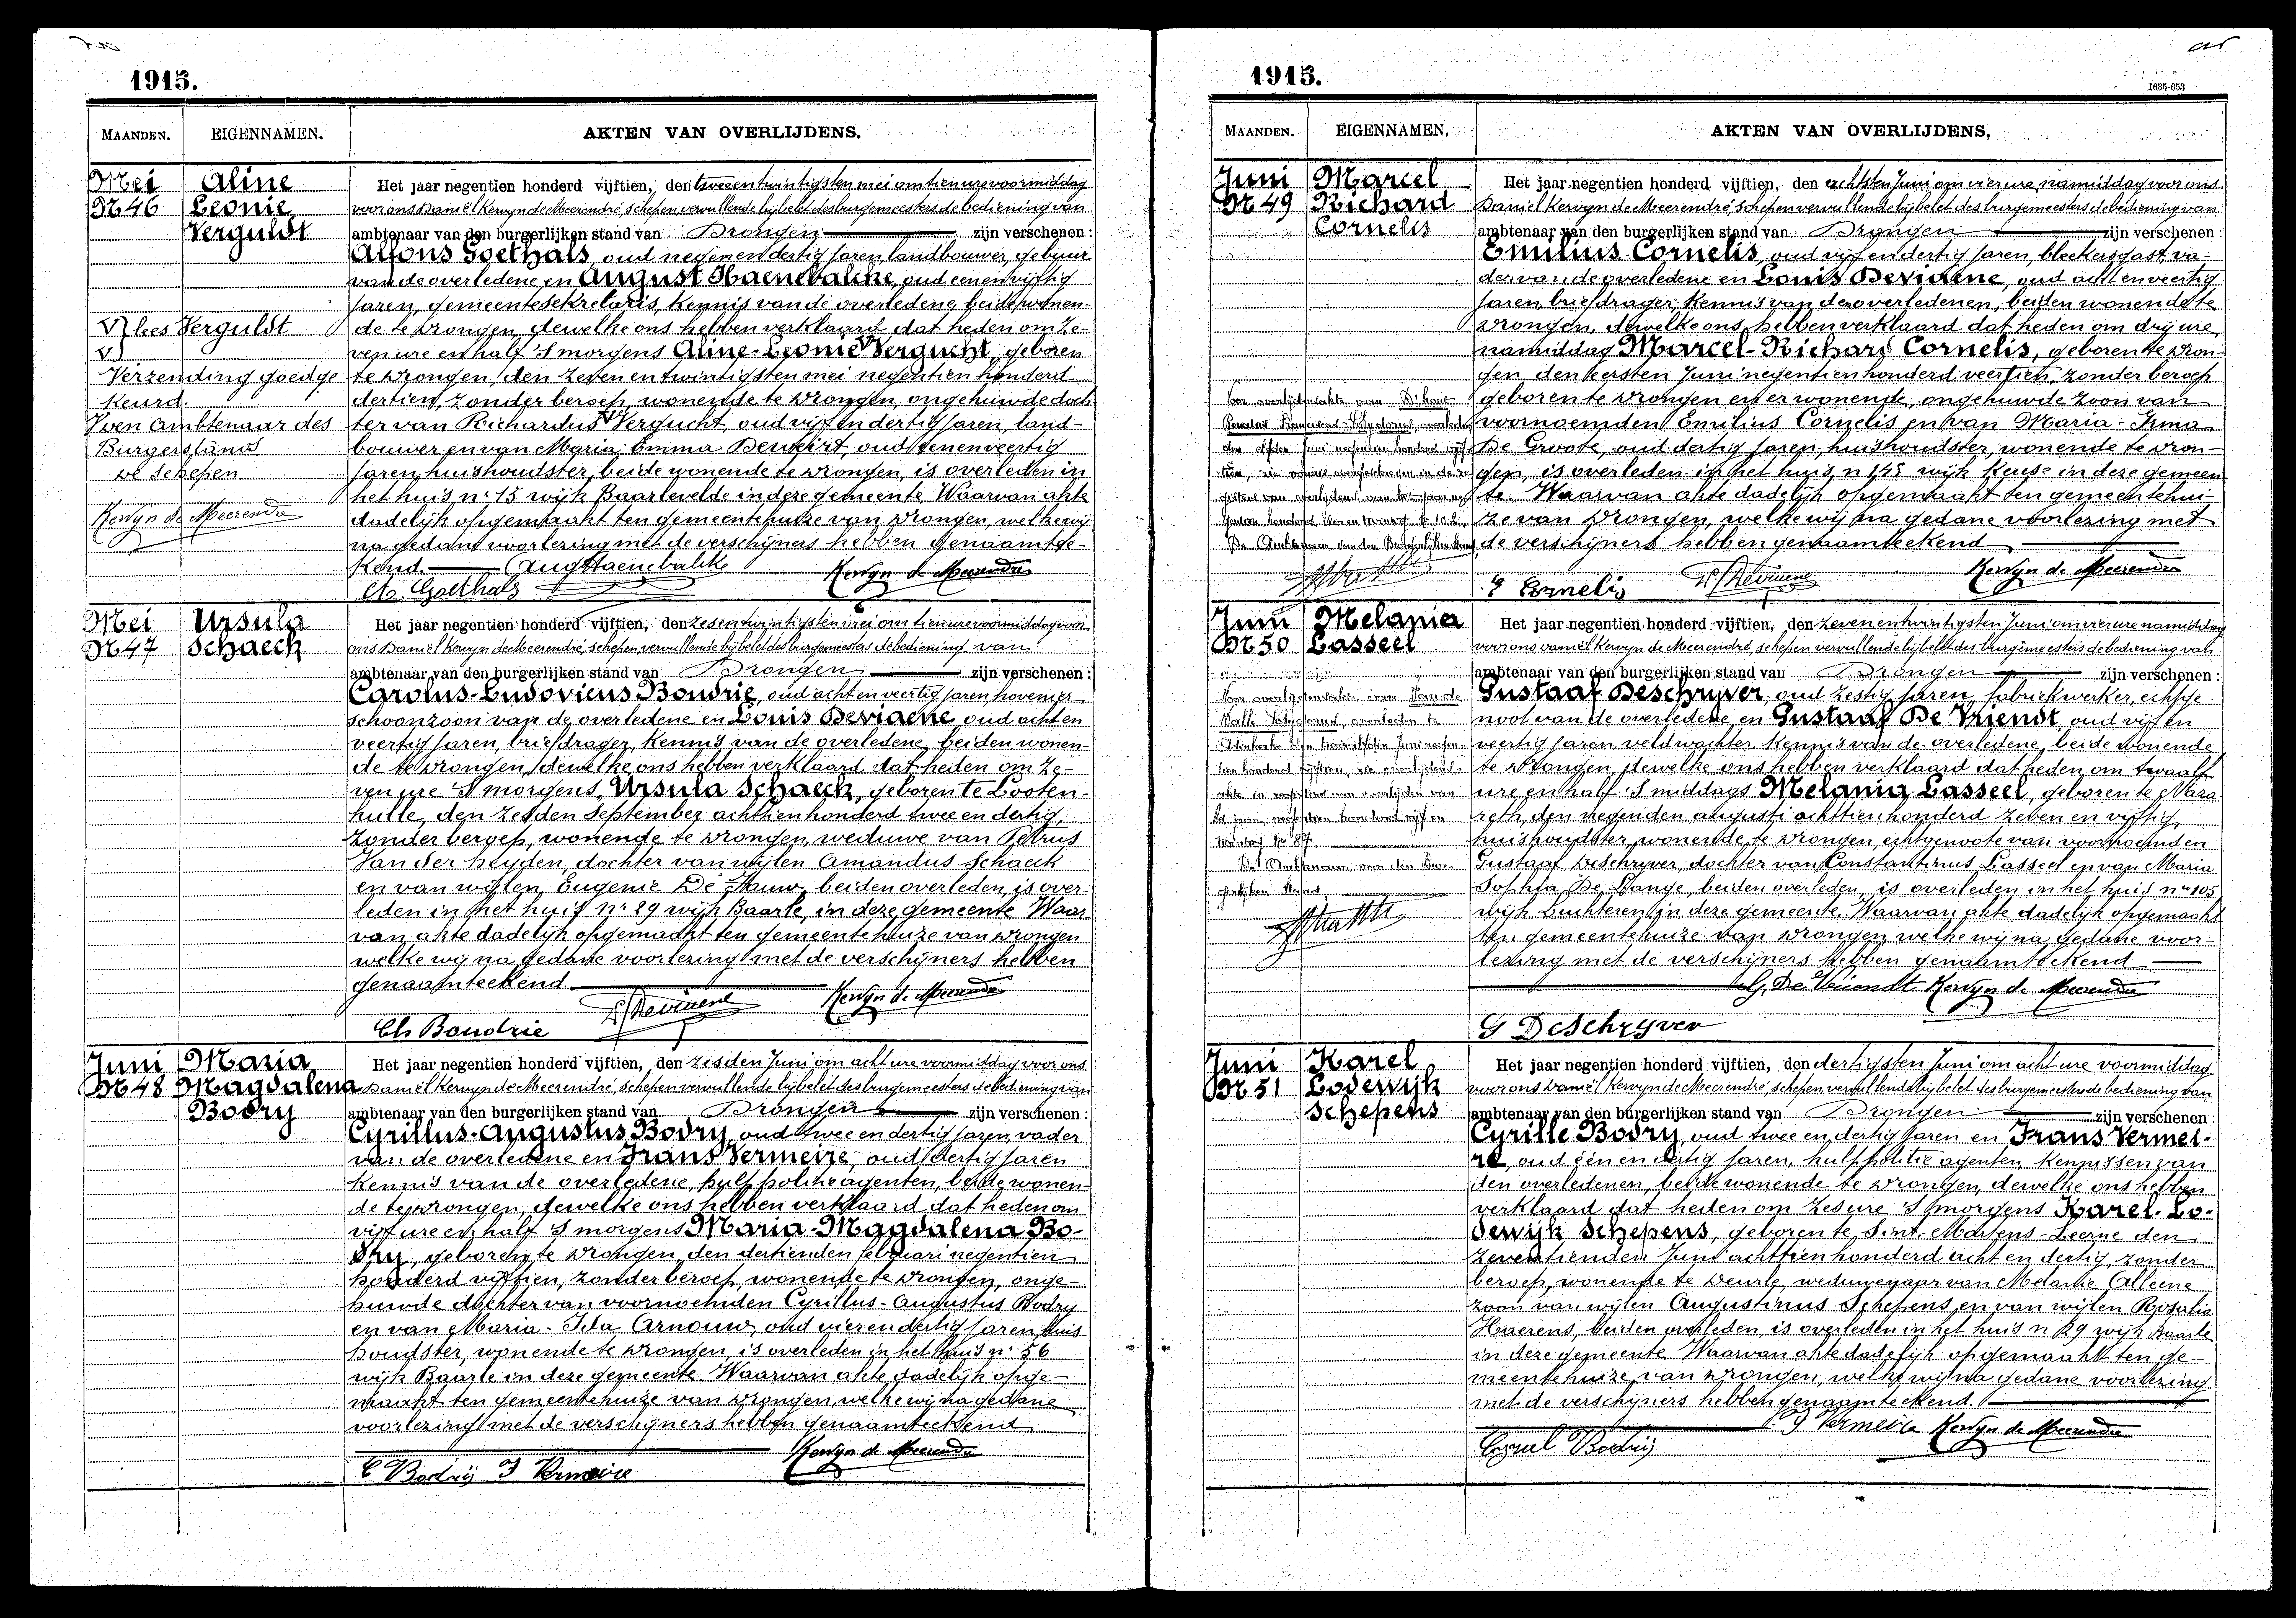 1915.
MAANDEN. EIGENNAMEN. AKTEN VAN OVERLIJDENS.
Mei
N 46
Aline
Leonie
Verguldt
V} lees Verguldt
V}
Verzending goedge
keurd.
Den Ambtenaar des
Burgerstands
de schepen
Kervyn de Meerendré
Het jaar negentien honderd vijftien, den tweeentwintigsten mei om tien ure voormiddag
voor ons Daniël Kervyn de Meerendré, schepen vervullende bij belet des burgemeesters de bediening van
ambtenaar van den burgerlijken stand van Drongen zijn verschenen :
Alfons Goethals, oud negenendertig jaren, landbouwer, gebuur
van de overledene en August Haenebalcke, oud eenenvijftig
jaren, gemeentesekretaris, kennis van de overledene, beide wonen-
de te Drongen, dewelke ons hebben verklaard dat heden om ze-
ven ure en half 's morgens Aline-Leonie V Vergucht, geboren
te Drongen, den zeven en twintigsten mei negentien honderd
dertien, zonder beroep, wonende te Drongen, ongehuwde doch
ter van Richardus V Vergucht, oud vijf en dertig jaren, land-
bouwer en van Maria Emma, oud eenenveertig
jaren, huishoudster, beide wonende te Drongen, is overleden in
het huis nr 15 wijk Baarlevelde in deze gemeente Waarvan akte
dadelijk opgemaakt ten gemeentehuize van Drongen, welke wij
na gedane voorlezing met de verschijners hebben genaamtee-
kend. Aug Haenebalcke Kervyn de Meerendré
A. Goethals
Mei
N 47
Ursula
Schaeck
Het jaar negentien honderd vijftien, den zesentwintigsten mei om tien ure voormiddag voor
ons Daniël Kervyn de Meerendré, schepen vervullende bij belet des burgemeesters de bediening van
ambtenaar van den burgerlijken stand van Drongen zijn verschenen :
Carolus-Ludovicus Boudrie, oud acht en veertig jaren, hovenier,
schoonzoon van de overledene en Louis Deviaene, oud acht en
veertig jaren, briefdrager, kennis van de overledene, beiden wonen-
de te Drongen, dewelke ons hebben verklaard dat heden om ze-
ven ure 's morgens, Ursula Schaeck, geboren te Looten-
hulle, den zesden September achttien honderd twee en dertig,
zonder beroep, wonende te Drongen, weduwe van Petrus
Van der heyden, dochter van wijlen Amandus Schaeck
en van wijlen Eugenie De Pauw, beiden overleden, is over-
leden in het huis nr 29 wijk Baarle, in deze gemeente Waar
van akte dadelijk opgemaakt ten gemeentehuize van Drongen
welke wij na gedane voorlezing met de verschijners hebben
genaamteekend.
L. Deviaene Kervyn de Meerendré
Ch Boudrie
Juni
N 48
Maria
Magdalena
Bodry
Het jaar negentien honderd vijftien, den zesden Juni om acht ure voormiddag voor ons
Daniël Kervyn de Meerendré, schepen vervullende bij belet des burgemeesters de bediening van
ambtenaar van den burgerlijken stand van Drongen zijn verschenen :
Cyrillus-Augustus Bodry, oud twee en dertig jaren, vader
van de overledene en Frans Vermeire, oud dertig jaren
kennis van de overledene, hulppolitieagenten, beide wonen-
de te Drongen, dewelke ons hebben verklaard dat heden om
vijf ure en half 's morgens Maria-Magdalena Bo-
dry, geboren te Drongen, den dertienden februari negentien
honderd vijftien, zonder beroep, wonende te Drongen, onge-
huwde dochter van voornoemden Cyrillus-Augustus Bodry
en van Maria-Ida Arnouw, oud vierendertig jaren, huis
houdster, wonende te Drongen, is overleden in het huis nr 56
wijk Baarle in deze gemeente Waarvan akte dadelijk opge-
maakt ten gemeentehuize van Drongen, welke wij na gedane
voorlezing met de verschijners hebben genaamteekend
Kervyn de Meerendré
C Bodry F Vermeire
1915.
1635-653
MAANDEN. EIGENNAMEN. AKTEN VAN OVERLIJDENS.
Juni
N 49
Marcel
Richard
Cornelis
Het jaar negentien honderd vijftien, den achtsten Juni om vier ure namiddag voor ons
Daniël Kervyn de Meerendré, schepen vervullende bij belet des burgemeesters de bediening van
ambtenaar van den burgerlijken stand van Drongen zijn verschenen :
Emilius Cornelis, oud vijf en dertig jaren, bleekersgast, va-
der van de overledene en Louis Deviaene, oud acht en veertig
jaren, briefdrager, kennis van den overledenen, beiden wonende te
Drongen, dewelke ons hebben verklaard dat heden om drij ure,
namiddag Marcel-Richard Cornelis, geboren te Dron-
gen, den eersten Juni negentien honderd veertien, zonder beroep
geboren te Drongen en er wonende, ongehuwde zoon van
voornoemden Emilius Cornelis en van Maria-Irma
De Groote, oud dertig jaren, huishoudster, wonende te Dron-
gen, is overleden in het huis n 145 wijk Keuze in deze gemeen
te. Waarvan akte dadelijk opgemaakt ten gemeentehui-
ze van Drongen, welke wij na gedane voorlezing met
de verschijners hebben genaamteekend
Kervyn de Meerendré
E Cornelis L. Deviaene
Juni
N 50
Melania
Lasseel
Het jaar negentien honderd vijftien, den zevenentwintigsten Juni om vier ure namiddag
voor ons Daniël Kervyn de Meerendré, schepen vervullende bij belet des burgemeesters de bediening van
ambtenaar van den burgerlijken stand van Drongen zijn verschenen :
Gustaaf Deschryver, oud zestig jaren, fabriekwerker, echtge
noot van de overledene, en Gustaaf De Vriendt, oud vijf en
veertig jaren, veldwachter, kennis van de overledene, beide wonende
te Drongen, dewelke ons hebben verklaard dat heden om twaalf
ure en half 's middags Melania Lasseel, geboren te Naza
reth, den negenden augusti achttien honderd zeven en vijftig,
huishoudster, wonende te Drongen, echtgenoote van voornoemden
Gustaaf Deschryver, dochter van Constantinus Lasseel en van Maria
Sophia De Lange, beiden overleden, is overleden in het huis nr 105
wijk Luchteren in deze gemeente. Waarvan akte dadelijk opgemaakt
ten gemeentehuize van Drongen welke wij na gedane voor-
lezing met de verschijners hebben genaamteekend
G. De Vriendt Kervyn de Meerendré
G Deschryver
Juni
N 51
Karel
Lodewijk
Schepens
Het jaar negentien honderd vijftien, den dertigsten Juni om acht ure voormiddag
voor ons Daniël Kervyn de Meerendré, schepen vervullende bij belet des burgemeesters de bediening van
ambtenaar van den burgerlijken stand van Drongen zijn verschenen :
Cyrille Bodry, oud twee en dertig jaren en Frans Vermei-
re, oud één en dertig jaren, hulppolitie agenten, kennissen van
den overledenen, beide wonende te Drongen, dewelke ons hebben
verklaard dat heden om zes ure 's morgens Karel-Lo-
dewijk Schepens, geboren te Sint-Martens-Leerne den
zeventienden Juni achttien honderd acht en dertig, zonder
beroep, wonende te Deurle, weduwenaar van Melanie Alleene
zoon van wijlen Augustinus Schepens en van wijlen Rosalia
Haerens, beiden overleden, is overleden in het huis n 29 wijk Baarle
in deze gemeente Waarvan akte dadelijk opgemaakt ten ge-
meentehuize van Drongen, welke wij na gedane voorlezing
met de verschijners hebben genaamteekend.
F Vermeire Kervyn de Meerendré
Cyriel Bodry